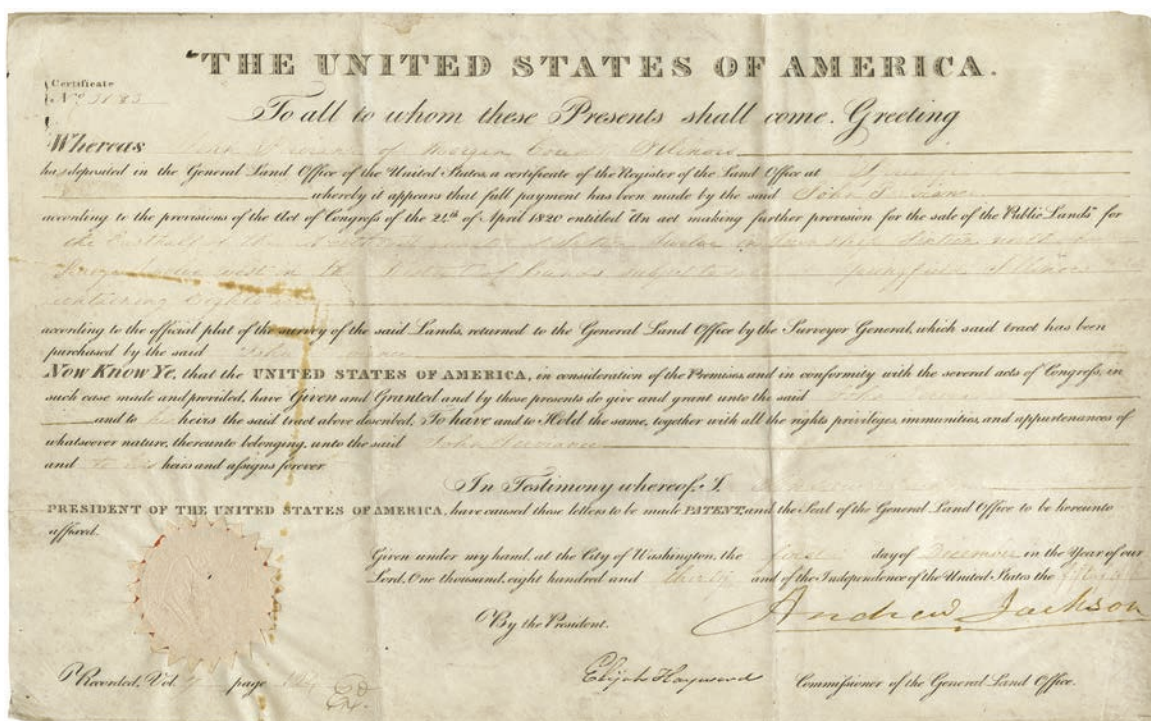 THE UNITED STATES OF AMERICA.
Certificate
No.
To all to whom these Presents shall come, Greeting
Whereas of Morgan County Illinois
has deposited in the General Land Office of the United States, a certificate of the Register of the Land Office at
whereby it appears that full payment has been made by the said John S.
according to the provisions of the Act of Congress of the 24th of April 1820 entitled "An act making further provision for the sale of the Public Lands" for
the East half of the quarter of Section Twelve in township Sixteen
Range west in the District of Lands subject to sale Springfield Illinois
containing Eighty
according to the official plat of the survey of the said Lands, returned to the General Land Office by the Surveyor General, which said tract has been
purchased by the said John
Now Know Ye, that the UNITED STATES OF AMERICA, in consideration of the Premises, and in conformity with the several acts of Congress, in
such case made and provided, have Given and Granted and by these presents do give and grant unto the said John
and to his heirs the said tract above described, To have and to Hold the same, together with all the rights privileges, immunities, and appurtenances of
whatsoever nature, thereunto belonging, unto the said John
and to his heirs and assigns forever
In Testimony whereof, I,
PRESIDENT OF THE UNITED STATES OF AMERICA, have caused these letters to be made PATENT, and the Seal of the General Land Office to be hereunto
affixed.
Given under my hand, at the City of Washington, the first day of December in the Year of our
Lord, One thousand, eight hundred and thirty and of the Independence of the United States the
Andrew Jackson
By the President.
Elijah Hayward Commissioner of the General Land Office.
Recorded, Vol. page